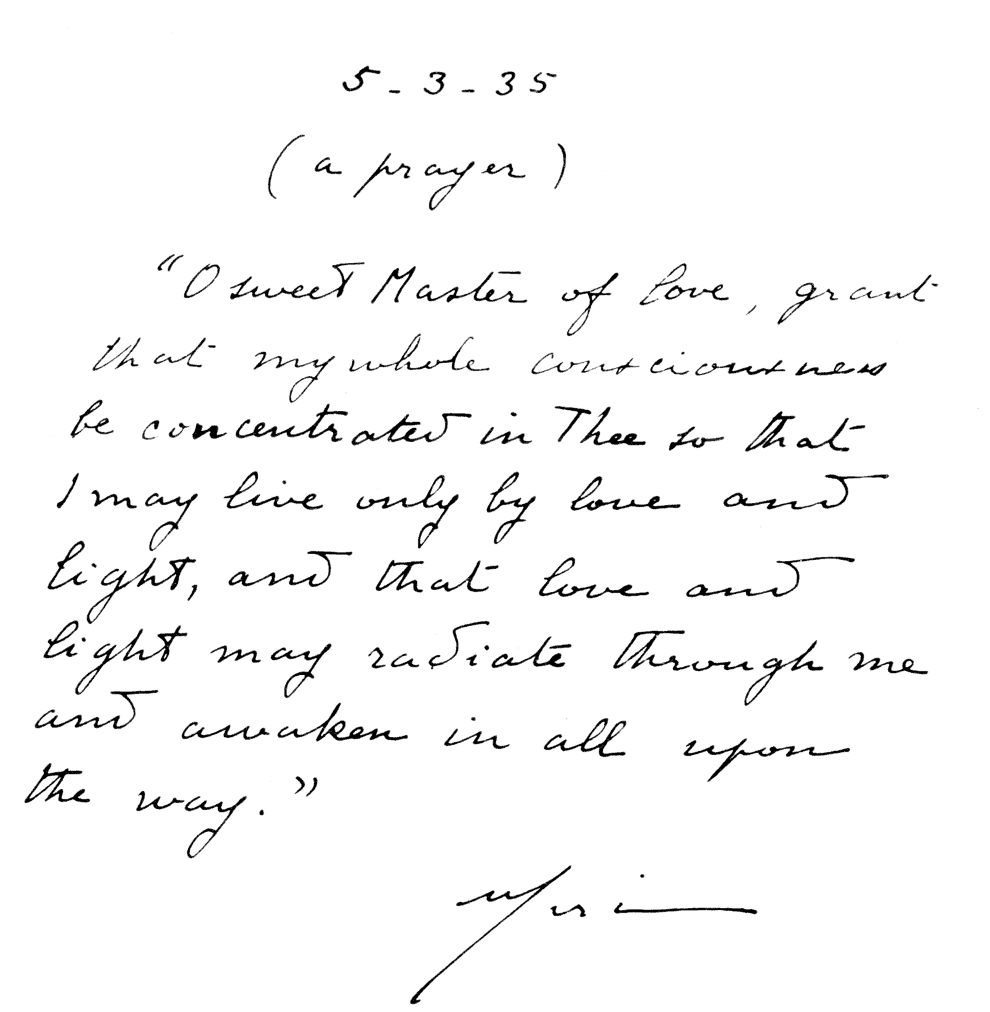 5-3-35
(a prayer)
"O sweet Master of love, grant
that my whole consciousness
be concentrated in Thee so that
I may live only by love and
light, and that love and
light may radiate through me
and awaken in all upon
the way."